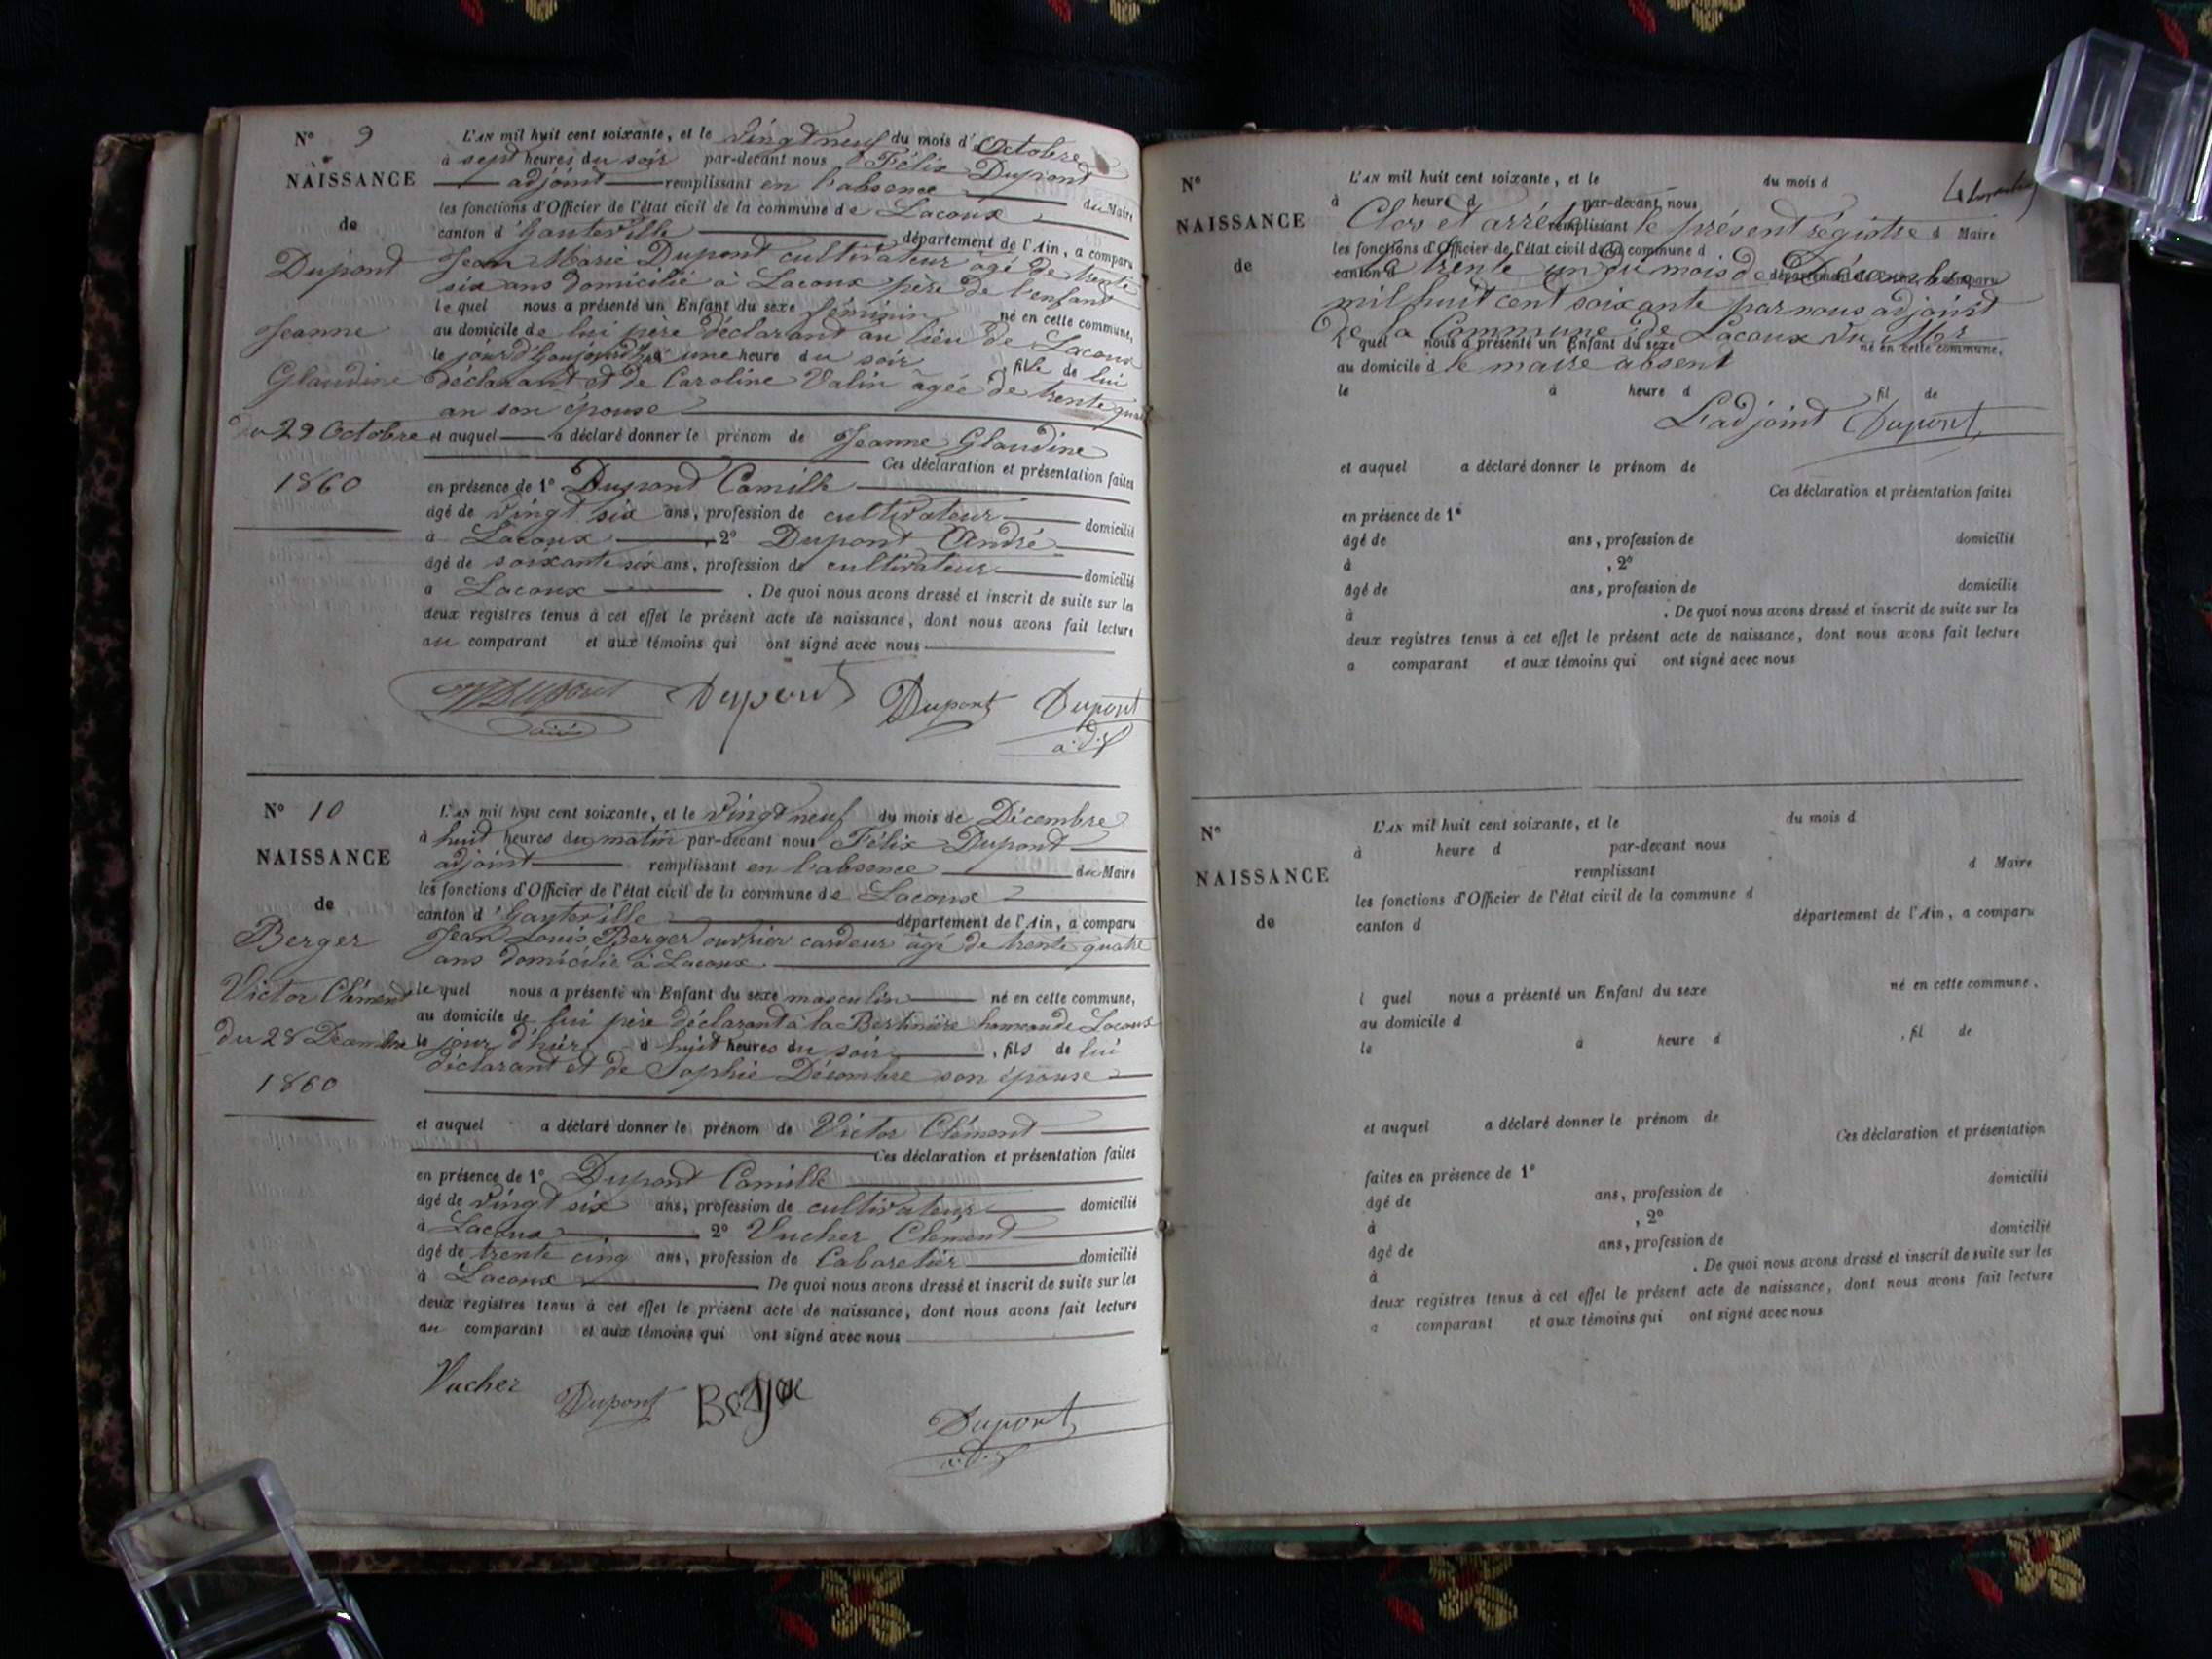 N° 9
NAISSANCE
de
Dupond
Jeanne
Glaudine
du 29 Octobre
1860
L'AN mil huit cent soixante, et le vingt neuf du mois d'Octobre
à sept heures du soir par-devant nous Félix Dupont
adjoint remplissant en l'absence du Maire
les fonctions d'Officier de l'état civil de la commune de Lacoux
canton d'Hauteville département de l'Ain, a comparu
Jean Marie Dupont cultivateur âgé de trente
six ans domicilié à Lacoux père de l'enfant
lequel nous a présenté un Enfant du sexe féminin né en cette commune,
au domicile de lui père déclarant au lieu de Lacoux
le jour d'haujourd'hui à une heure du soir, fille de lui
déclarant et de Caroline Valin âgée de trente
an son épouse
et auquel a déclaré donner le prénom de Jeanne Glaudine
Ces déclaration et présentation faites
en présence de 1° Dupond Camille
âgé de vingt six ans, profession de cultivateur domicilié
à Lacoux, 2° Dupont André
âgé de soixante six ans, profession de cultivateur domicilié
a Lacoux. De quoi nous avons dressé et inscrit de suite sur les
deux registres tenus à cet effet le présent acte de naissance, dont nous avons fait lecture
au comparant et aux témoins qui ont signé avec nous
Dupont Dupont Dupont Dupont
adj
N° 10
NAISSANCE
de
Berger
Victor Clément
du 28 Décembre
1860
L'AN mil huit cent soixante, et le vingt neuf du mois de Décembre
à huit heures du matin par-devant nous Félix Dupond
adjoint remplissant en l'absence du Maire
les fonctions d'Officier de l'état civil de la commune de Lacoux
canton d'Hauteville département de l'Ain, a comparu
Jean Louis Berger ouvrier cardeur âgé de trente quatre
ans domicilié à Lacoux
lequel nous a présenté un Enfant du sexe masculin né en cette commune,
au domicile de lui père déclarant à la Bertinière hameau de Lacoux
le jour d'hier à huit heures du soir, fils de lui
déclarant et de Sophie Décombre son épouse
et auquel a déclaré donner le prénom de Victor Clément
Ces déclaration et présentation faites
en présence de 1° Dupond Camille
âgé de vingt six ans, profession de cultivateur domicilié
à Lacoux 2° Vucher Clément
âgé de trente cinq ans, profession de Cabaretier domicilié
à Lacoux De quoi nous avons dressé et inscrit de suite sur les
deux registres tenus à cet effet le présent acte de naissance, dont nous avons fait lecture
au comparant et aux témoins qui ont signé avec nous
Vucher Dupont Berger Dupont
adj
N°
NAISSANCE
de
L'AN mil huit cent soixante, et le du mois d
à heure d par-devant nous
Clos et arrêté remplissant le présent régistre d Maire
les fonctions d'Officier de l'état civil de la commune d
canton d département de l'Ain, a comparu
le trente un du mois de Décembre
mil huit cent soixante par nous adjoint
de la Commune de Lacoux du Mer
l quel nous a présenté un Enfant du sexe né en cette commune,
au domicile d le maire absent
le à heure d fil de
L'adjoint Dupont
et auquel a déclaré donner le prénom de
Ces déclaration et présentation faites
en présence de 1°
âgé de ans, profession de domicilié
à , 2°
âgé de ans, profession de domicilié
à . De quoi nous avons dressé et inscrit de suite sur les
deux registres tenus à cet effet le présent acte de naissance, dont nous avons fait lecture
a comparant et aux témoins qui ont signé avec nous
N°
NAISSANCE
de
L'AN mil huit cent soixante, et le du mois d
à heure d par-devant nous
remplissant d Maire
les fonctions d'Officier de l'état civil de la commune d
canton d département de l'Ain, a comparu
l quel nous a présenté un Enfant du sexe né en cette commune.
au domicile d
le à heure d , fil de
et auquel a déclaré donner le prénom de
Ces déclaration et présentation
faites en présence de 1°
âgé de ans, profession de domicilié
à , 2°
âgé de ans, profession de domicilié
à . De quoi nous avons dressé et inscrit de suite sur les
deux registres tenus à cet effet le présent acte de naissance, dont nous avons fait lecture
a comparant et aux témoins qui ont signé avec nous